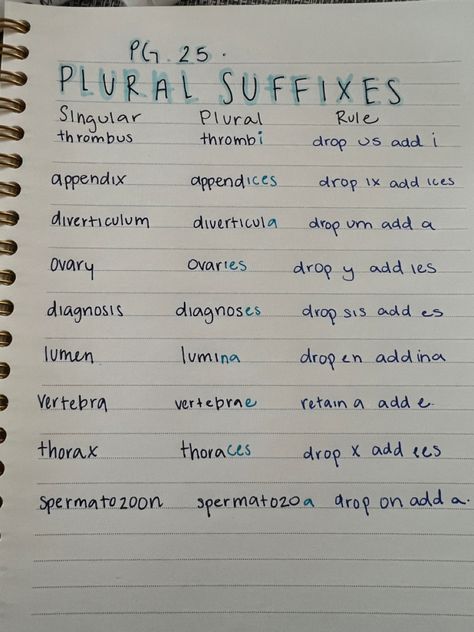 PG. 25.
PLURAL SUFFIXES
Singular Plural Rule
thrombus thrombi drop us add i
appendix appendices drop ix add ices
diverticulum diverticula drop um add a
ovary ovaries drop y add ies
diagnosis diagnoses drop sis add es
lumen lumina drop en add ina
vertebra vertebrae retain a add e.
thorax thoraces drop x add ces
spermatozoon spermatozoa drop on add a.